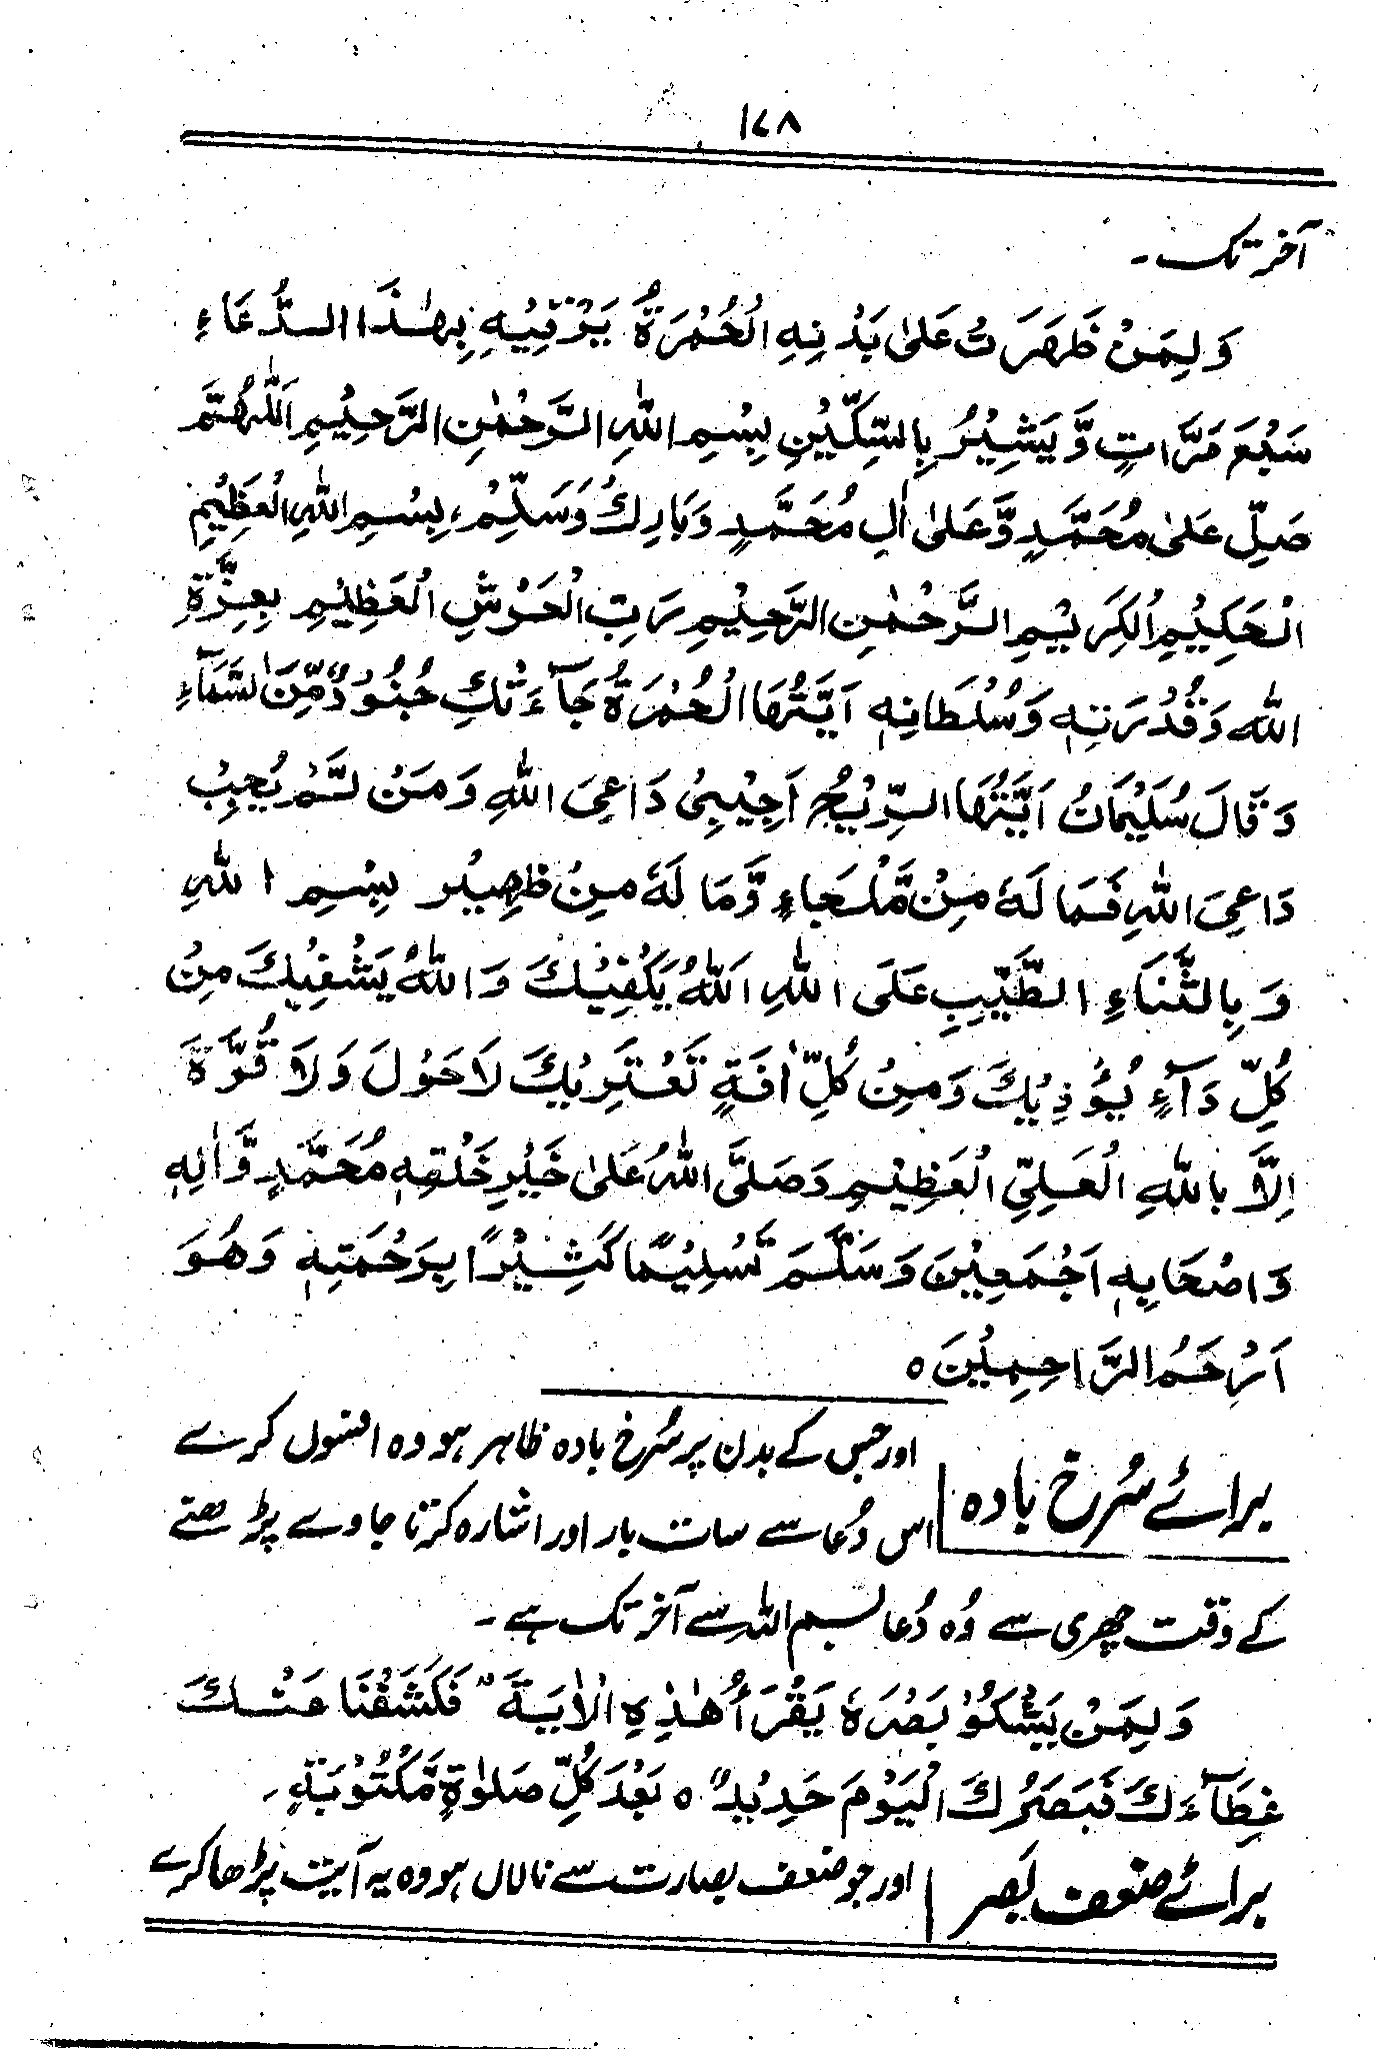 ۱۷۸
آخر تک ۔
وَلِمَنْ ظَهَرَتْ عَلىٰ بَدْنِهِ الْحُمْرَةُ يَرْقِيْهِ بِهٰذَا الدُّعَاءِ
سَبْعَ مَرَّاتٍ وَّيَشِيْرُ بِالسِّكِّيْنِ بِسْمِ اللهِ الرَّحْمٰنِ الرَّحِيْمِ اَللّٰهُمَّ
صَلِّ عَلىٰ مُحَمَّدٍ وَّعَلىٰ اٰلِ مُحَمَّدٍ وَبَارِكْ وَسَلِّمْ، بِسْمِ اللهِ الْعَظِيْمِ
الْحَكِيْمِ الْكَرِيْمِ الرَّحْمٰنِ الرَّحِيْمِ رَبِّ الْعَرْشِ الْعَظِيْمِ بِعِزَّةِ
اللهِ وَقُدْرَتِهٖ وَسُلْطَانِهٖ اَيَّتُهَا الْحُمْرَةُ جَآءَتْكِ جُنُوْدٌ مِّنَ السَّمَآءِ
وَقَالَ سُلَيْمَانُ اَيَّتُهَا الرِّيْحُ اَجِيْبِىْ دَاعِىَ اللهِ وَمَنْ لَّمْ يُجِبْ
دَاعِىَ اللهِ فَمَا لَهٗ مِنْ مَّلْجَاءٍ وَّمَا لَهٗ مِنْ ظَهِيْر بِسْمِ اللهِ
وَبِالثَّنَاءِ الطَّيِّبِ عَلَى اللهِ اَللّٰهُ يَكْفِيْكَ وَاللّٰهُ يَشْفِيْكَ مِنْ
كُلِّ دَآءٍ يُؤْذِيْكَ وَمِنْ كُلِّ اٰفَةٍ تَعْتَرِيْكَ لَاحَوْلَ وَلَا قُوَّةَ
اِلَّا بِاللّٰهِ الْعَلِىِّ الْعَظِيْمِ وَصَلَّى اللّٰهُ عَلىٰ خَيْرِ خَلْقِهٖ مُحَمَّدٍ وَّاٰلِهٖ
وَاصْحَابِهٖ اَجْمَعِيْنَ وَسَلَّمَ تَسْلِيْمًا كَثِيْرًا بِرَحْمَتِهٖ وَهُوَ
اَرْحَمُ الرَّاحِمِيْنَ ه
برائے سُرخ بادہ
اور جس کے بدن پر سُرخ بادہ ظاہر ہو وہ افسوں کرے
اس دُعا سے سات بار اور اشارہ کرتا جاوے پڑھتے
کے وقت چھری سے وُہ دُعا بسم اللہ سے آخر تک ہے ۔
وَلِمَنْ يَشْكُوْ بَصَرَهٗ يَقْرَأُ هٰذِهِ الْاٰيَةَ " فَكَشَفْنَا عَنْكَ
غِطَآءَكَ فَبَصَرُكَ الْيَوْمَ حَدِيْدٌ" ه بَعْدَ كُلِّ صَلٰوةٍ مَّكْتُوْبَةٍ ۔
برائے ضعف بصر
اور جو ضعف بصارت سے نالاں ہو وہ یہ آیت پڑھا کرے